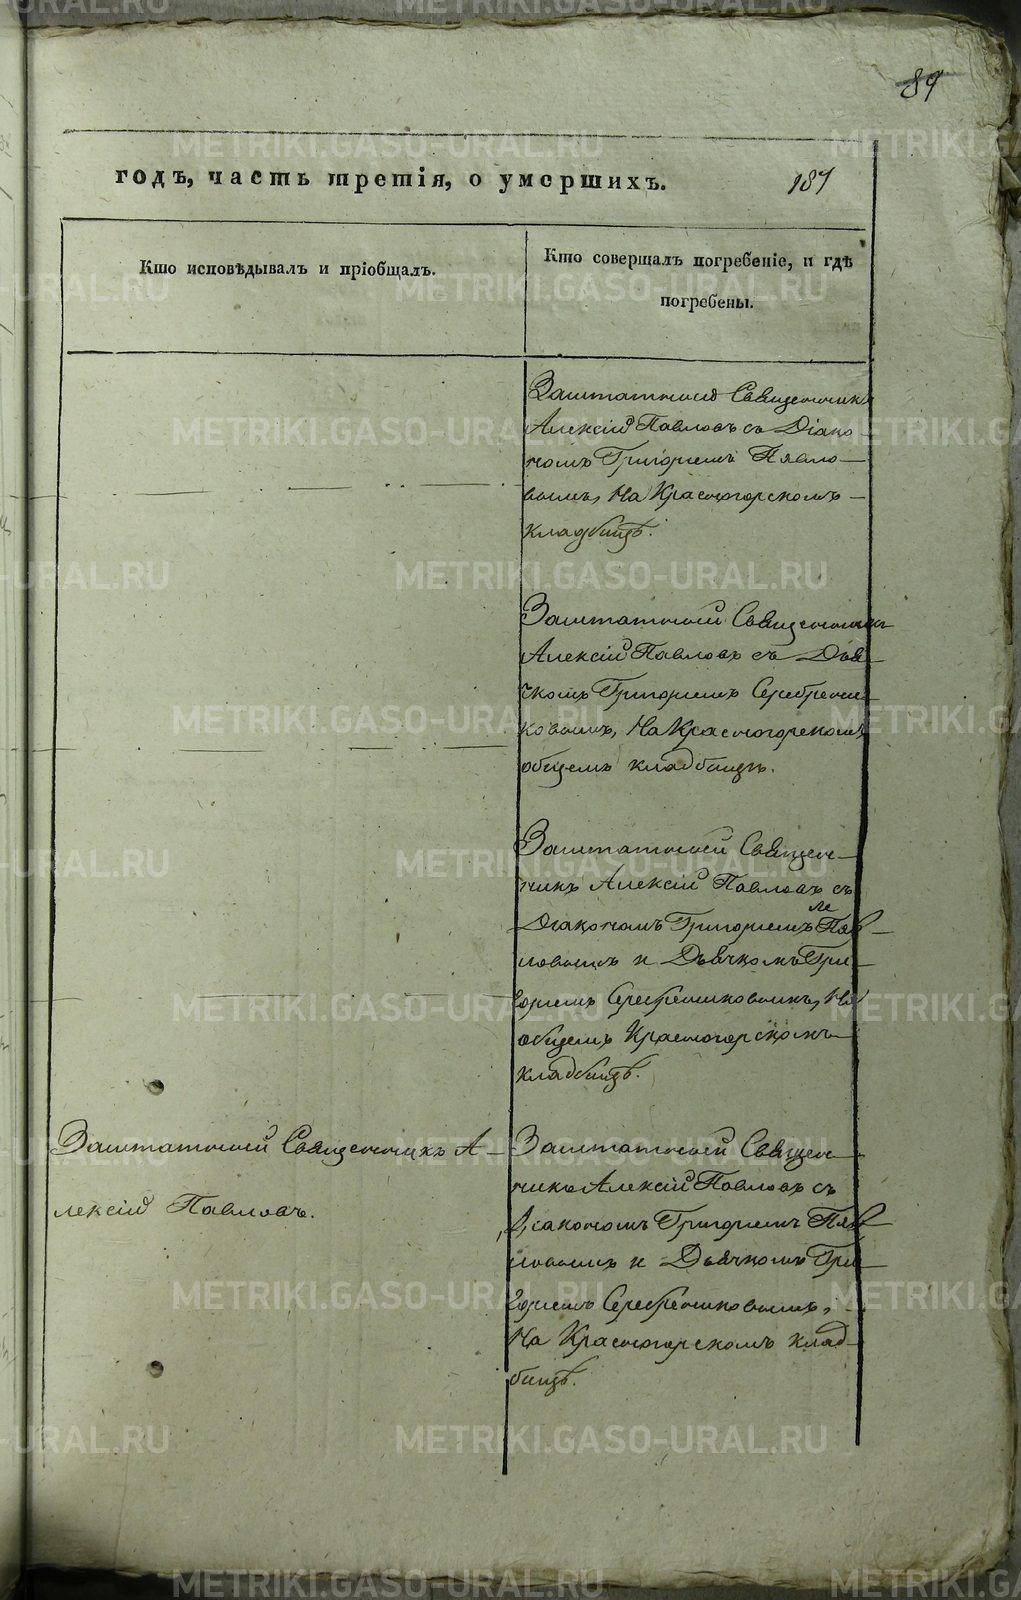 89
годъ, часть третія, о умершихъ. 187
Кто исповѣдывалъ и пріобщалъ.
Кто совершалъ погребеніе, и гдѣ
погребены.
Заштатной Священникъ
Алексій Павловъ съ Діако-
номъ Григорiемъ Павло-
вымъ, На Красногорскомъ
кладбищѣ.
Заштатной Священникъ
Алексій Павловъ съ Дья-
чкомъ Григорiемъ Серебрени-
ковымъ, На Красногорскомъ
общемъ кладбищѣ.
Заштатной Священ-
никъ Алексій Павловъ съ
Діакономъ Григорiемъ Пав-
ловымъ и Дьячкомъ Гри-
горiемъ Серебрениковымъ, На
общемъ Красногорскомъ
кладбищѣ.
Заштатной Священникъ А-
лексій Павловъ.
Заштатной Священ-
никъ Алексій Павловъ съ
Діакономъ Григорiемъ Пав-
ловымъ и Дьячкомъ Гри-
горiемъ Серебрениковымъ,
На Красногорскомъ клад-
бищѣ.
METRIKI.GASO-URAL.RU